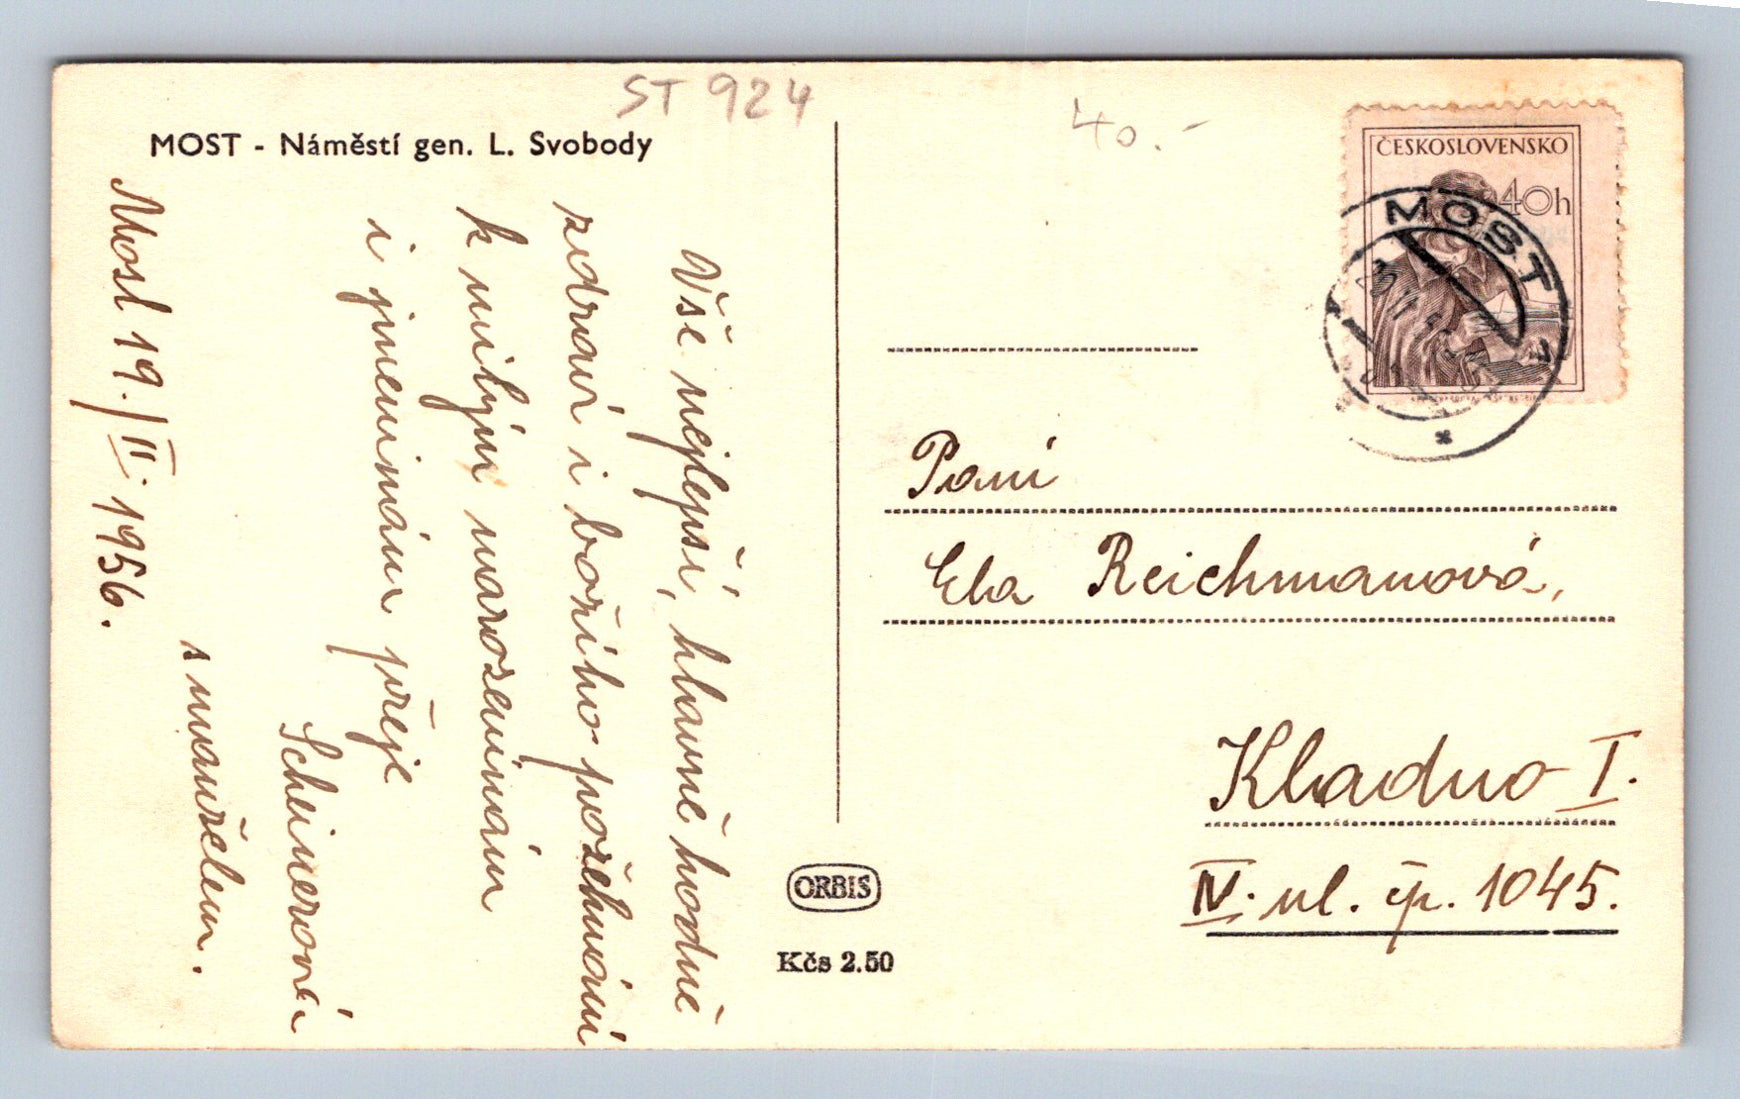 ST 924
40.-
MOST - Náměstí gen. L. Svobody
Most 19./II. 1956.
Vše nejlepší, hlavně hodně
zdraví i božího požehnání
k milým narozeninám
i jmeninám přeje
Scheinerová
s manželem.
ČESKOSLOVENSKO
40h
MOST
Paní
Ela Reichmanová,
Kladno I.
IV. ul. čp. 1045.
ORBIS
Kčs 2.50